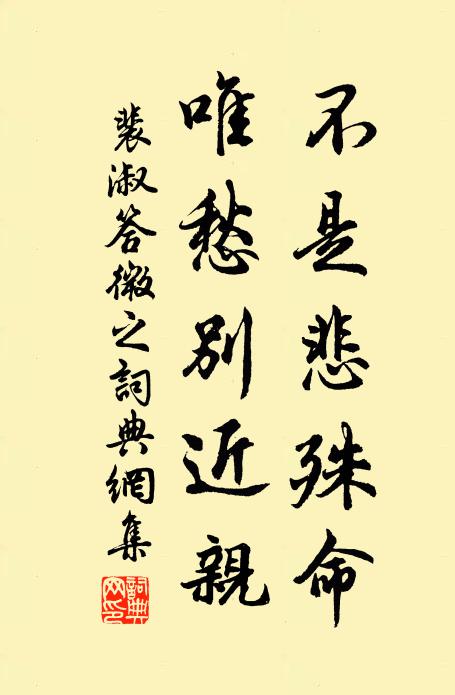 不是悲殊命
唯愁別近親
裴淑答微之詞典網集
詞典網印